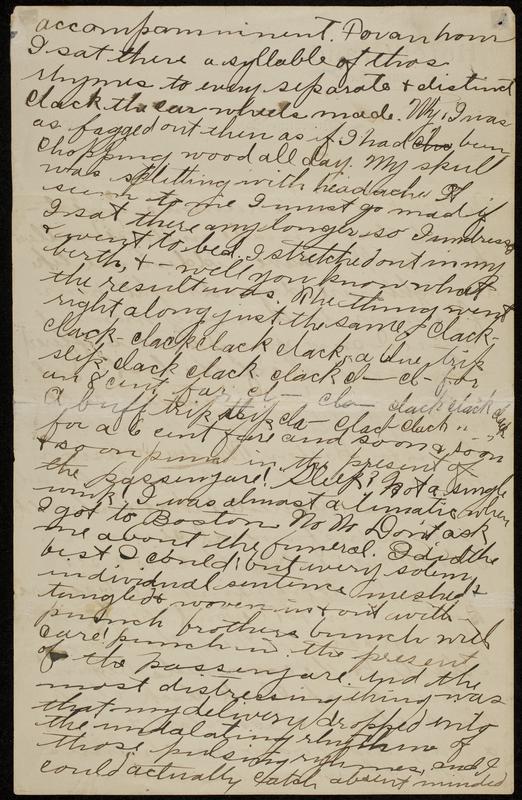 accompamninent. For an hour
I sat there a syllable of thos
rhymes to every separate & distinct
clack the car wheels made. Why, I was
as fagged out then as if I had been
chopping wood all day. My skull
was splitting with headache. It
seem to me I must go mad if
I sat there any longer, so I undress
& went to bed, I stretched out in my
berth, & - well you know what
the result was. The thing went
right along just the same, Clack-
clack-clack clack clack, a blue trip
slip clack clack clack cl— cl- for
an 8 cent fair cl— cla— clack clack clack
A buff trip slip cla- clac clack
for a 6 cent fare and soon & soon
& so on punn in the present of
the passenjare! Sleep? Not a single
wink! I was almost a lunatic when
I got to Boston. No No Don't ask
me about the funeral. I did the
best I could, but every solem
individual sentence meshed &
tangled & woven in & out with
punch brothers bunch with
care! punch in the present
of the passenjare. And the
most distressing thing was
that my delivery dropped into
the undalating rhythm of
those pulsing rhymes, and I
could actually catch absent minded